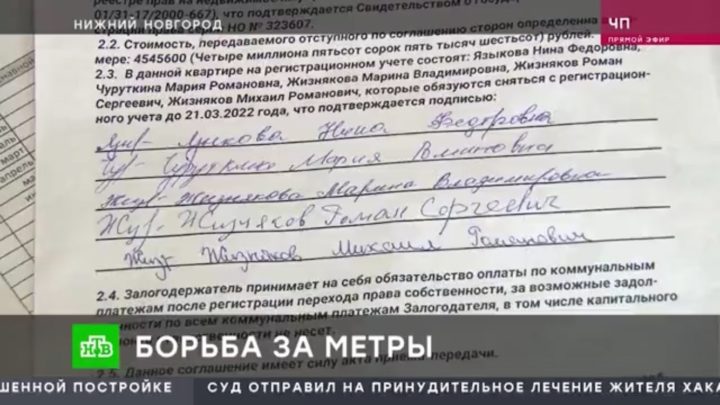 НИЖНИЙ НОВГОРОД
ЧП
ПРЯМОЙ ЭФИР
01/31-17/2000-667), что подтверждается Свидетельством о госуд
НО № 323607.
2.2. Стоимость, передаваемого отступного по соглашению сторон определена
мере: 4545600 (Четыре миллиона пятьсот сорок пять тысяч шестьсот) рублей.
2.3. В данной квартире на регистрационном учете состоят: Языкова Нина Федоровна,
Чуруткина Мария Романовна, Жизнякова Марина Владимировна, Жизняков Роман
Сергеевич, Жизняков Михаил Романович, которые обязуются сняться с регистрацион-
ного учета до 21.03.2022 года, что подтверждается подписью:
Языкова Нина Федоровна
Чуруткина Мария
Жизнякова Марина Владимировна
Жизняков Роман Сергеевич
Жизняков Михаил Романович
2.4. Залогодержатель принимает на себя обязательство оплаты по коммунальным
платежам после регистрации перехода права собственности, за возможные задол-
женности по всем коммунальным платежам Залогодателя, в том числе капитального
не несет.
2.5. Данное соглашение имеет силу акта приема-передачи.
март
апрель
НТВ
БОРЬБА ЗА МЕТРЫ
ШЕННОЙ ПОСТРОЙКЕ СУД ОТПРАВИЛ НА ПРИНУДИТЕЛЬНОЕ ЛЕЧЕНИЕ ЖИТЕЛЯ ХАКА